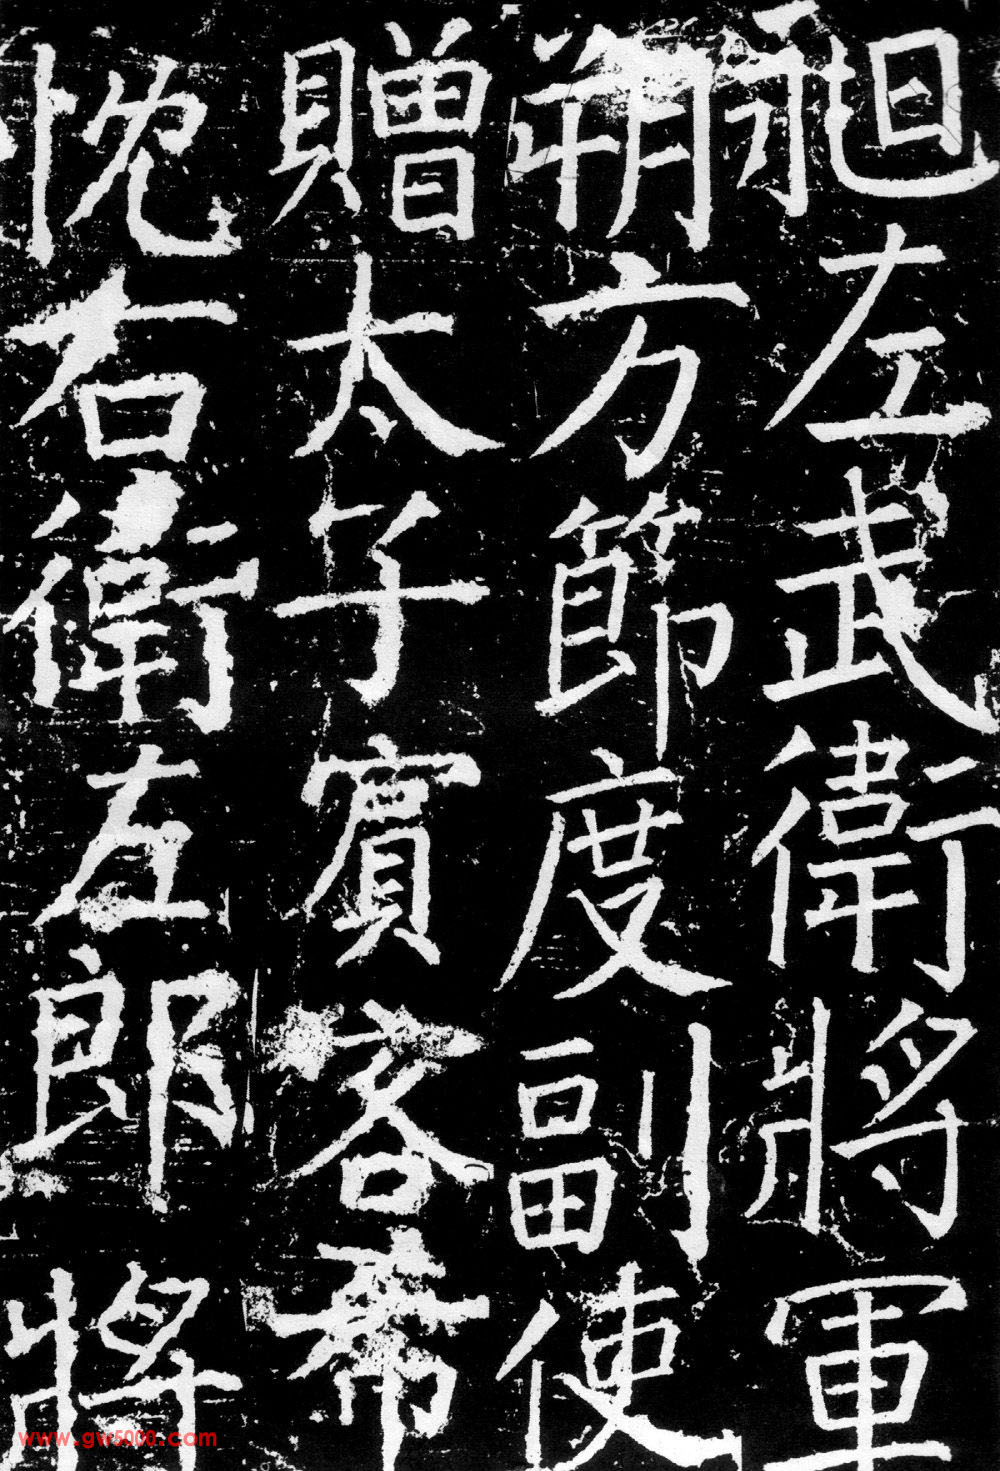 左武衛將軍
朔方節度副使
贈太子賓客希
忱右衛左郎將
www.gw5000.com